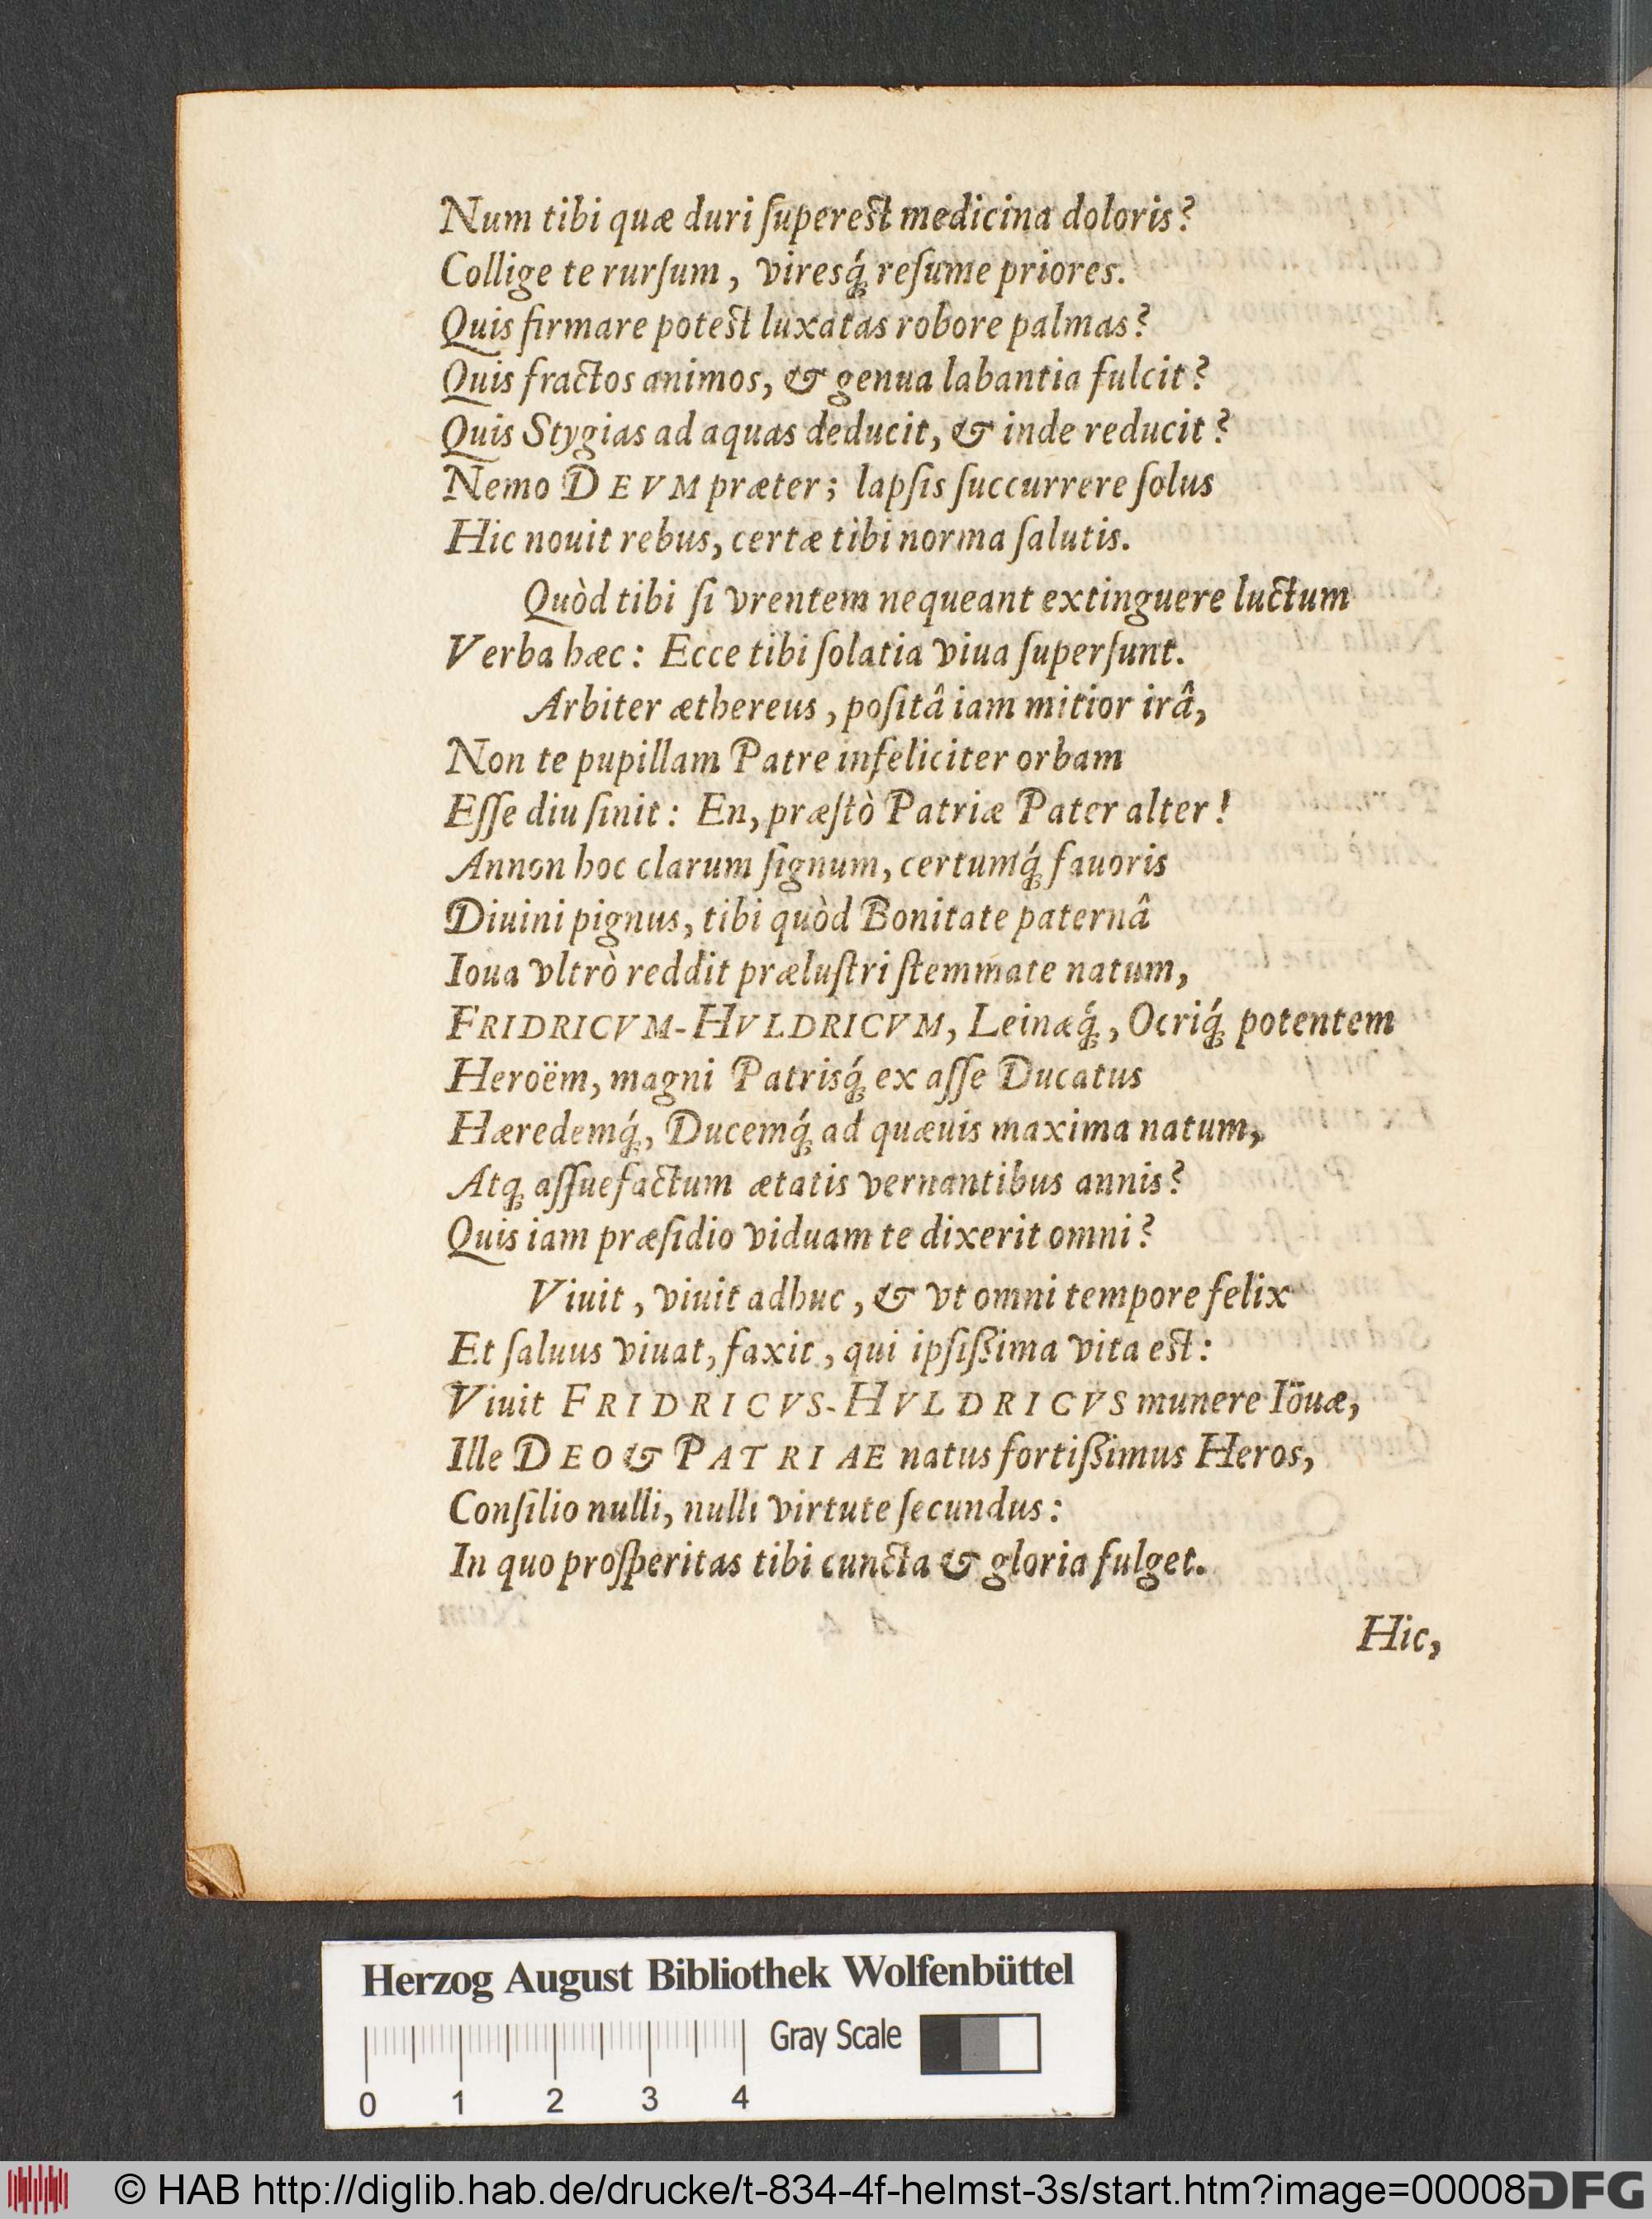 Num tibi quæ duri ſupereſt medicina doloris?
Collige te rurſum, viresq́; reſume priores.
Quis firmare poteſt luxatas robore palmas?
Quis fractos animos, & genua labantia fulcit?
Quis Stygias ad aquas deducit, & inde reducit?
Nemo DEVM præter; lapſis ſuccurrere ſolus
Hic nouit rebus, certæ tibi norma ſalutis.
Quòd tibi ſi vrentem nequeant extinguere luctum
Verba hæc: Ecce tibi ſolatia viua ſuperſunt.
Arbiter æthereus, poſitâ iam mitior irâ,
Non te pupillam Patre infeliciter orbam
Eſſe diu ſinit: En, præſtò Patriæ Pater alter!
Annon hoc clarum ſignum, certumq́; fauoris
Diuini pignus, tibi quòd Bonitate paternâ
Ioua vltrò reddit præluſtri ſtemmate natum,
FRIDRICVM-HVLDRICVM, Leinæq́;, Ocriq́; potentem
Heroëm, magni Patrisq́; ex aſſe Ducatus
Hæredemq́;, Ducemq́; ad quæuis maxima natum,
Atq; aſſuefactum ætatis vernantibus annis?
Quis iam præſidio viduam te dixerit omni?
Viuit, viuit adhuc, & vt omni tempore felix
Et ſaluus viuat, faxit, qui ipſiſſima vita eſt:
Viuit FRIDRICVS-HVLDRICVS munere Iöuæ,
Ille DEO & PATRIAE natus fortiſſimus Heros,
Conſilio nulli, nulli virtute ſecundus:
In quo proſperitas tibi cuncta & gloria fulget.
Hic,
Herzog August Bibliothek Wolfenbüttel
Gray Scale
0 1 2 3 4
© HAB http://diglib.hab.de/drucke/t-834-4f-helmst-3s/start.htm?image=00008
DFG